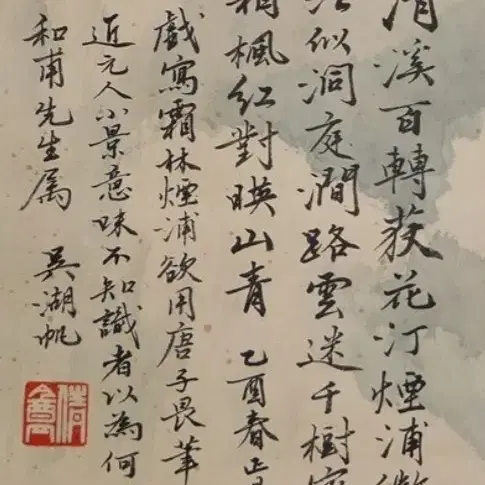 溪百轉荻花汀煙浦
似洞庭澗路雲迷千樹
楓紅對暎山青 乙酉春正
戲寫霜林煙浦欲用唐子畏筆
近元人小景意味不知識者以為何
和甫先生属 吳湖帆
倩盦